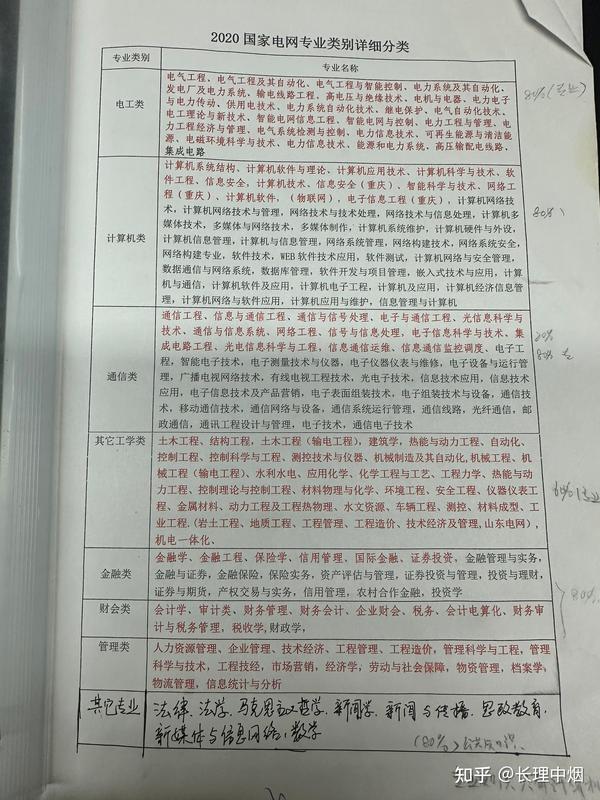 2020 国家电网专业类别详细分类
专业类别
专业名称
电工类
电气工程、电气工程及其自动化、电气工程与智能控制、电力系统及其自动化、
发电厂及电力系统、输电线路工程、高电压与绝缘技术、电机与电器、电力电子
与电力传动、供用电技术、电力系统自动化技术、继电保护、电气自动化技术、
电工理论与新技术、智能电网信息工程、智能电网与控制、电力工程与管理、电
力工程经济与管理、电气系统检测与控制、电力信息技术、可再生能源与清洁能
源、电磁环境科学与技术、电力信息技术、能源和电力系统、高压输配电线路、
集成电路
80%(专业)
计算机类
计算机系统结构、计算机软件与理论、计算机应用技术、计算机科学与技术、软
件工程、信息安全，计算机技术、信息安全（重庆）、智能科学与技术、网络工
程（重庆）、计算机软件，（物联网），电子信息工程（重庆），计算机网络技
术，计算机网络技术与管理，网络技术与技术处理，网络技术与信息处理，计算机多
媒体技术，多媒体与网络技术，多媒体制作，计算机系统维护，计算机硬件与外设，
计算机信息管理，计算机与信息管理，网络系统管理，网络构建技术，网络系统安全，
网络构建专业，软件技术，WEB 软件技术应用，软件测试，计算机网络与安全管理，
数据通信与网络系统，数据库管理，软件开发与项目管理，嵌入式技术与应用，计算
机与通信，计算机软件及应用，计算机电子工程，计算机及应用，计算机经济信息管
理，计算机网络与软件应用，计算机应用与维护，信息管理与计算机
80%
通信类
通信工程、信息与通信工程、通信与信号处理、电子与通信工程、光信息科学与
技术、通信与信息系统、网络工程、信号与信息处理，电子信息科学与技术、集
成电路工程、光电信息科学与工程，信息通信运维、信息通信监控调度、电子工
程，智能电子技术，电子测量技术与仪器，电子仪器仪表与维修，电子设备与运行管
理，广播电视网络技术，有线电视工程技术，光电子技术，信息技术应用，信息技术
应用，电子信息技术及产品营销，电子表面组装技术，电子组装技术与设备，通信技
术，移动通信技术，通信网络与设备，通信系统运行管理，通信线路，光纤通信，邮
政通信，通讯工程设计与管理，电子技术，通信电子技术
80%
其它工学类
土木工程、结构工程，土木工程（输电工程），建筑学，热能与动力工程、自动化、
控制工程、控制科学与工程、测控技术与仪器、机械制造及其自动化，机械工程、机
械工程（输电工程）、水利水电、应用化学、化学工程与工艺、工程力学、热能与动
力工程、控制理论与控制工程、材料物理与化学、环境工程、安全工程、仪器仪表工
程、金属材料、动力工程及工程热物理、水文资源、车辆工程、测控、材料成型、工
业工程,（岩土工程、地质工程、工程管理、工程造价、技术经济及管理,山东电网），
机电一体化、
金融类
金融学、金融工程、保险学、信用管理、国际金融、证券投资，金融管理与实务，
金融与证券，金融保险，保险实务，资产评估与管理，证券投资与管理，投资与理财，
证券与期货，产权交易与实务，信用管理，农村合作金融，投资学
80%
财会类
会计学、审计类、财务管理、财务会计、企业财会、税务、会计电算化、财务审
计与税务管理，税收学,财政学，
管理类
人力资源管理、企业管理、技术经济、工程管理、工程造价，管理科学与工程，管理
科学与技术，工程技经，市场营销，经济学，劳动与社会保障，物资管理，档案学，
物流管理，信息统计与分析
其它专业
法律、法学、马克思主义哲学、新闻学、新闻与传播、思政教育、
新媒体与信息网络、数学
(80%)
知乎 @长理中烟